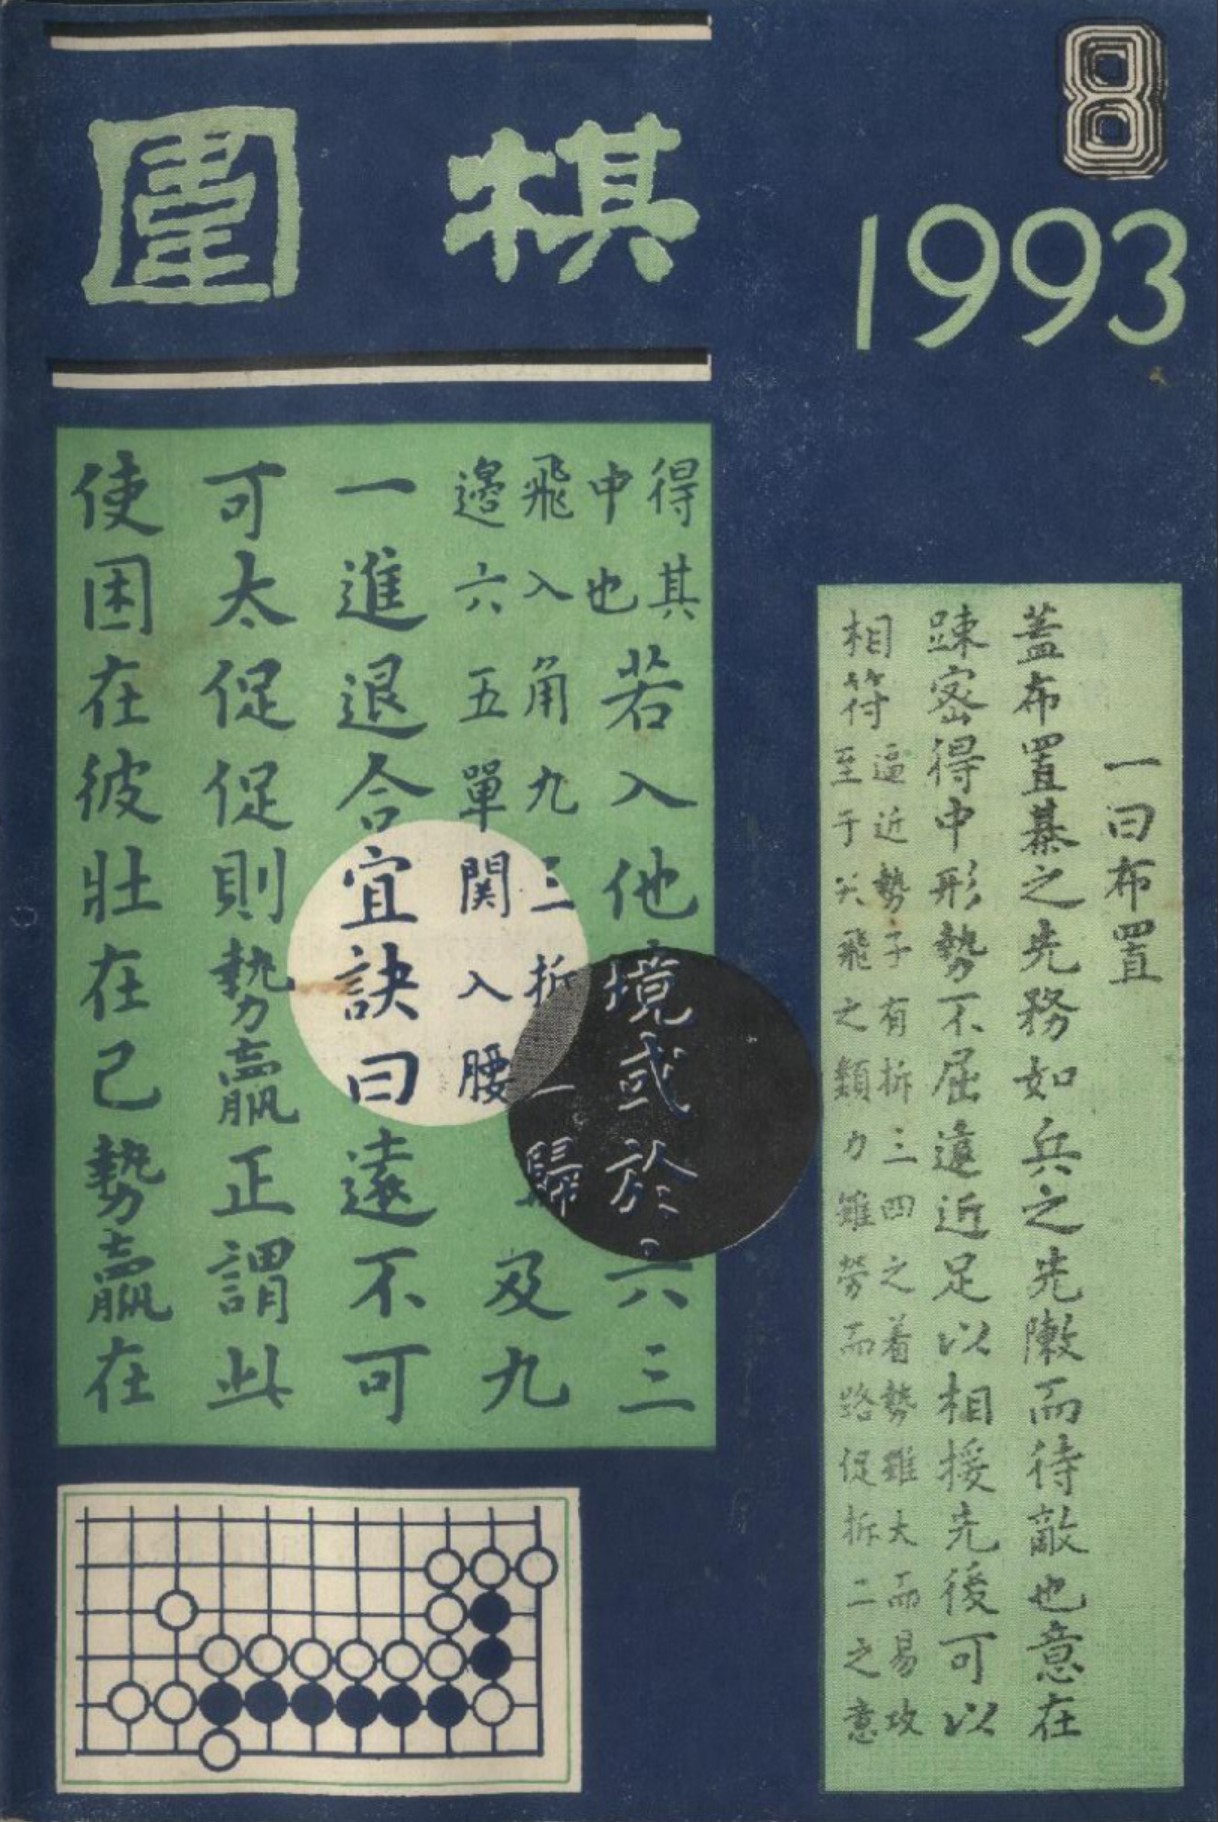 圍棋
8
1993
一曰布置
蓋布置棊之先務如兵之先陳而待敵也意在
踈密得中形勢不屈遠近足以相援先後可以
相符
逼近勢子有拆三四之着勢雖大而易攻
至于尖飛之類力雖勞而路促拆二之意
得其
中也
若入他境或於六三
飛入角九三拆
歸
邊六五單関入腰
及九
一進退合宜訣曰遠不可
可太促促則勢羸正謂此
使困在彼壯在己勢羸在